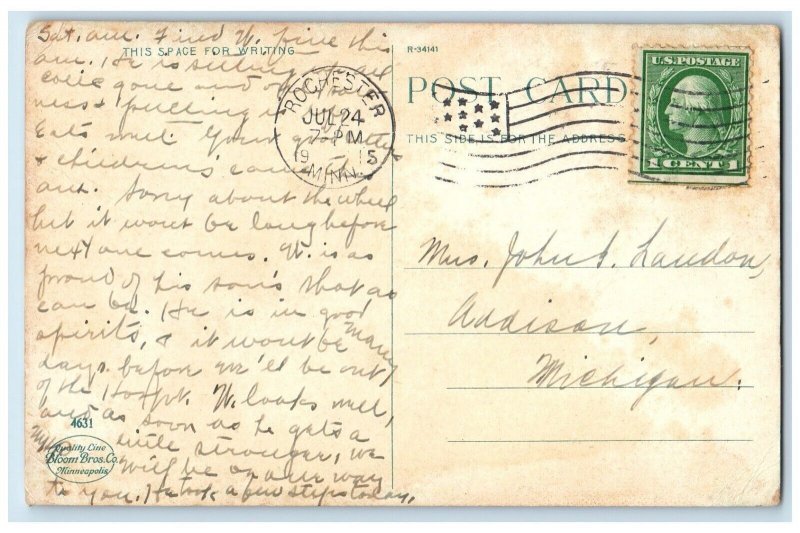 Sat. am. Find W. fine this
THIS SPACE FOR WRITING
am. He is sitting up all
gone and
ness & putting
Eats well. Your
& children's came
am. Sorry about the wheel
but it wont be long before
next one comes. W. is as
proud of his son's that as
can be. He is in good
spirits, & it wont be many
days before we'll be out
of the Hospt. W. looks well,
and as soon as he gets a
little stronger, we
will be on our way
to you. He took a few steps today.
4631
Quality Line
Bloom Bros. Co.
Minneapolis
R-34141
POST CARD
THIS SIDE IS FOR THE ADDRESS
ROCHESTER
JUL 24
7-PM
1915
MINN.
U.S. POSTAGE
1 CENT 1
Mrs. John G. Landon,
Addison,
Michigan.